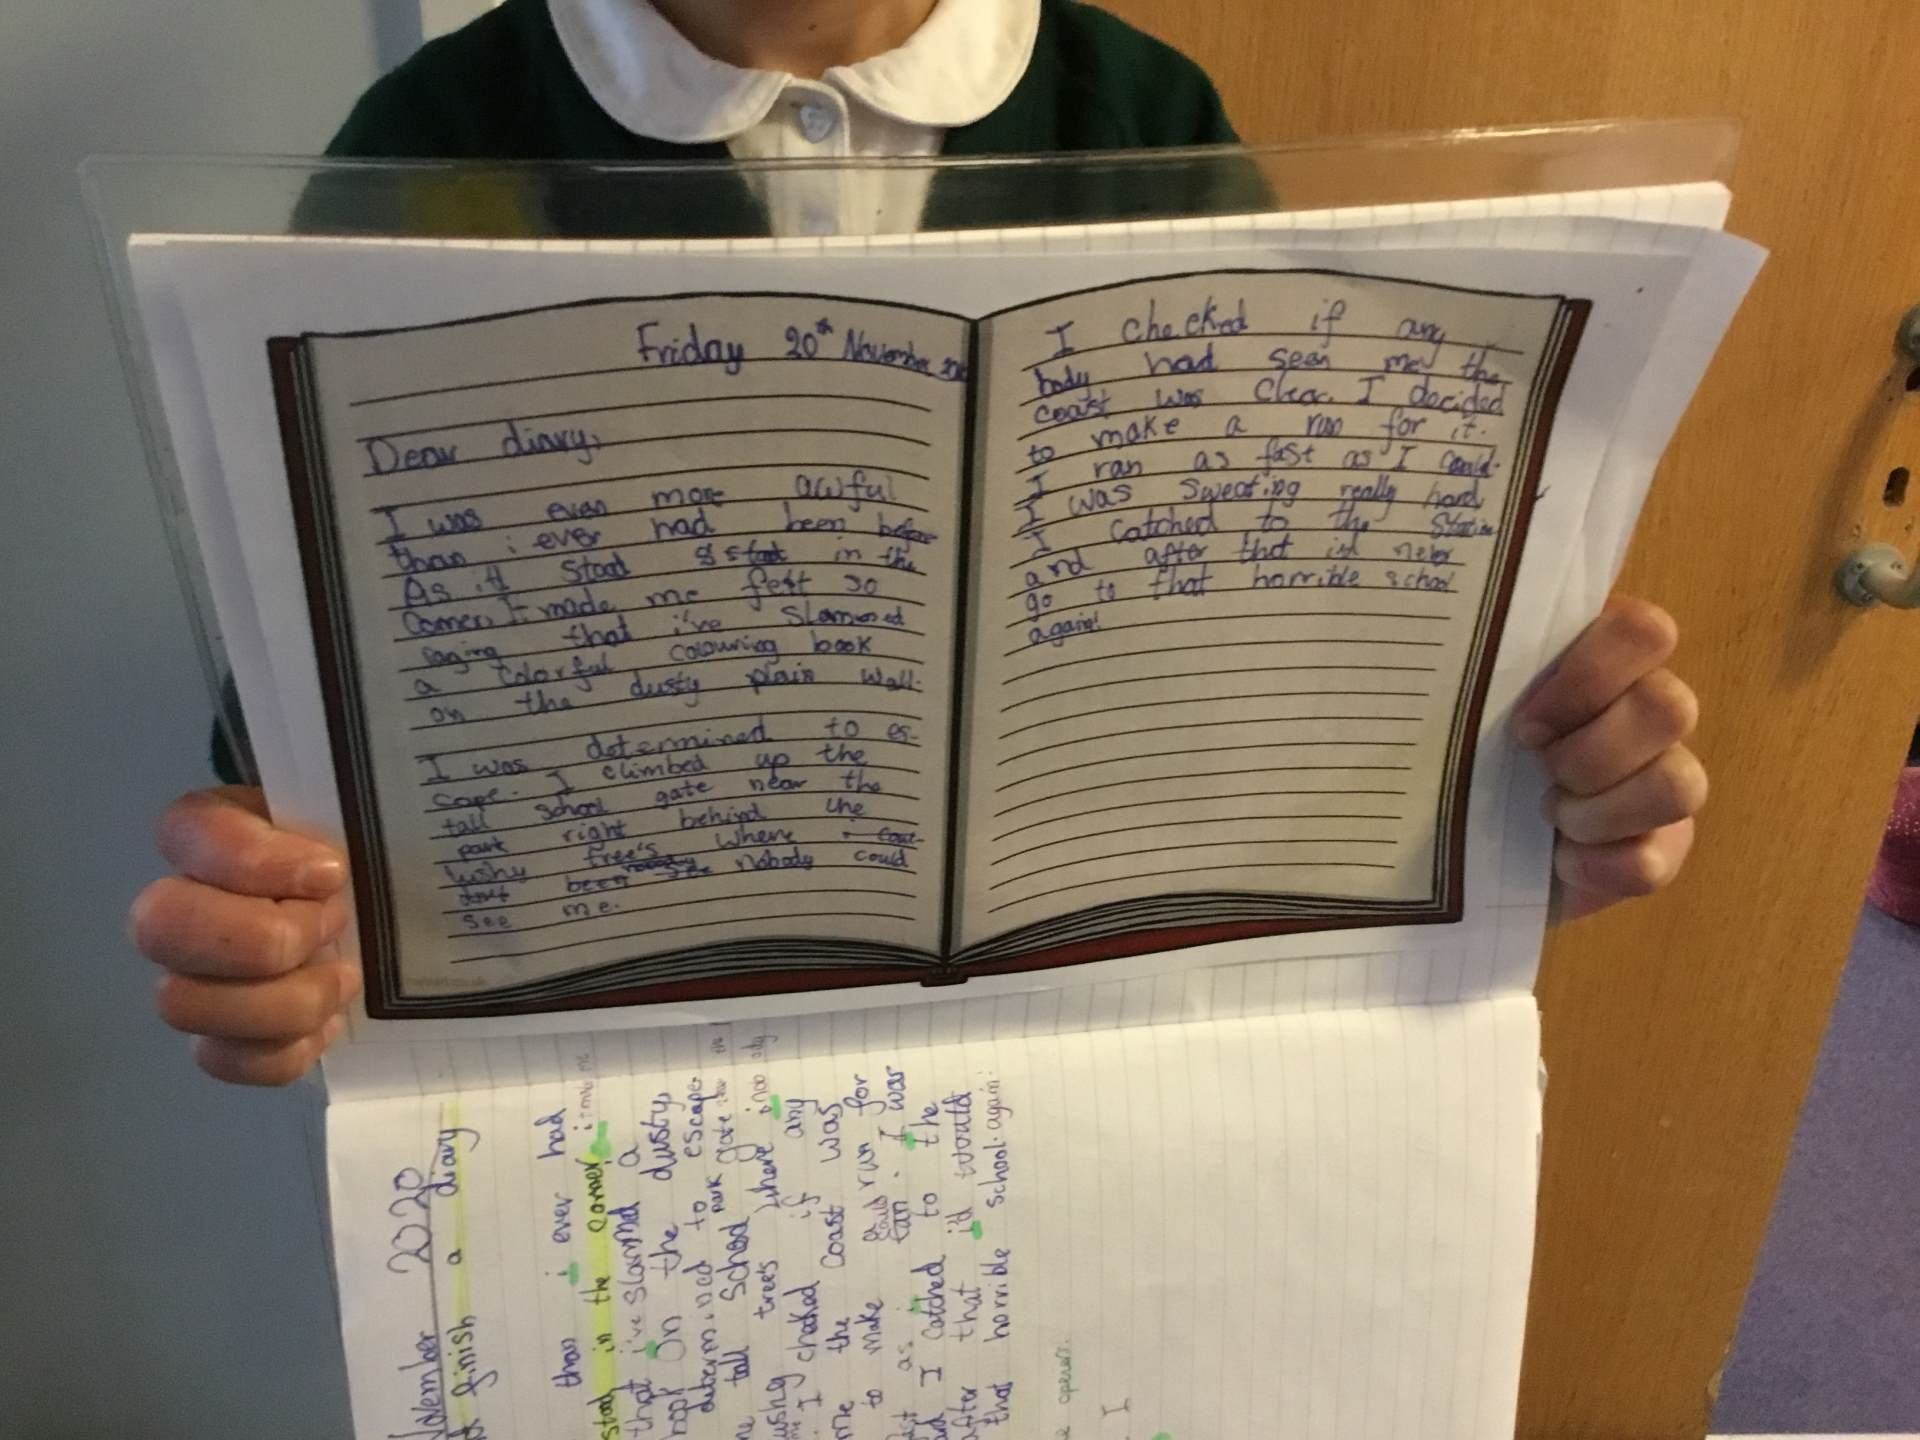 Friday 20th November 2020
Dear diary,
I was even more awful
than i ever had been before
As it stood stood in the
corner. It made me felt so
raging that i've Slammed
a colorful colouring book
on the dusty plain wall.
I was determined to es-
cape. I climbed up the
tall school gate near the
park right behind the
lushy tree's where i
been nobody see nobody could
see me.
I checked if any
body had seen me, the
coast was clear. I decided
to make a run for it.
I ran as fast as I could.
I was sweating really hard
I catched to the Station
and after that id never
go to that horrible school
again!
November 2020
finish a diary
than i ever had
stood in the corner, it made me
that i've slammed a
book On the dusty
determined to escape
tall School park gate
lushy trees where nobody
I checked if any
the coast was
to make a run for
fast as ran. I was
and I catched to the
after that i'd would
that horrible school again!
I